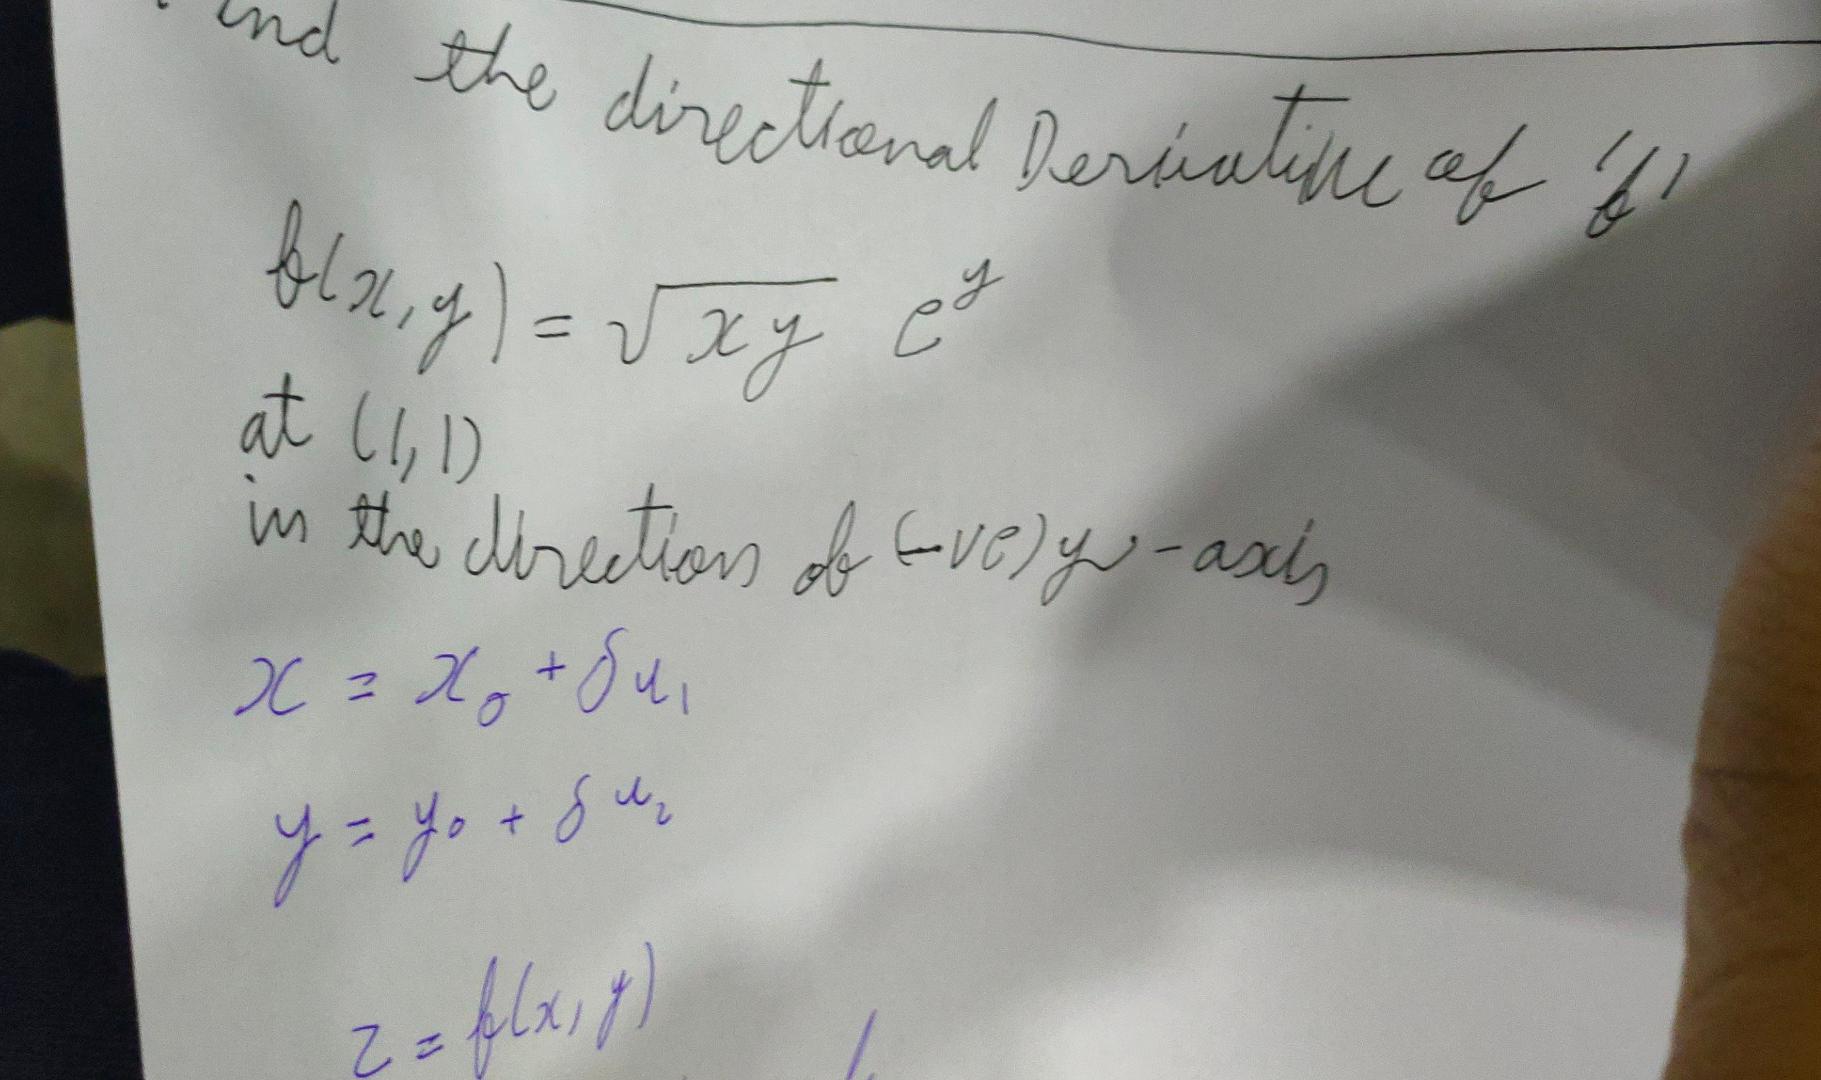 ind the directional Derivative of 'f'
f(x, y) = √xy e^y
at (1, 1)
in the direction of (-ve) y - axis
x = x₀ + δu₁
y = y₀ + δu₂
z = f(x, y)